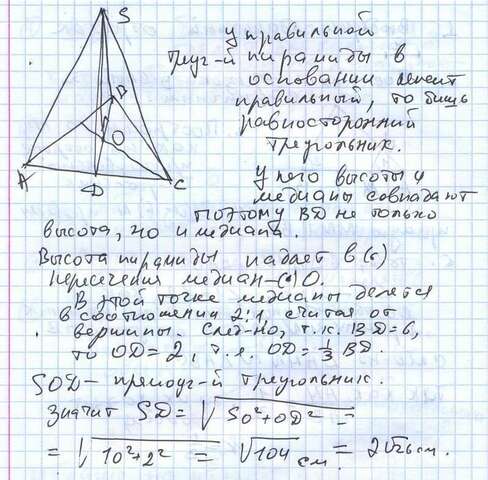 S
B
O
A
D
C
У правильной
треуг-й пирамиды в
основании лежит
правильный, то бишь
равносторонний
треугольник.
У него высоты и
медианы совпадают
поэтому BD не только
высота, но и медиана.
Высота пирамиды падает в (·)
пересечения медиан-(·) O.
В этой точке медианы делятся
в соотношении 2:1, считая от
вершины. След-но, т.к. BD=6,
то OD=2, т.е. OD=⅓ BD.
SOD- прямоуг-й треугольник.
Значит SD=√SO²+OD² =
= √10²+2² = √104 см. = 2√26 см.